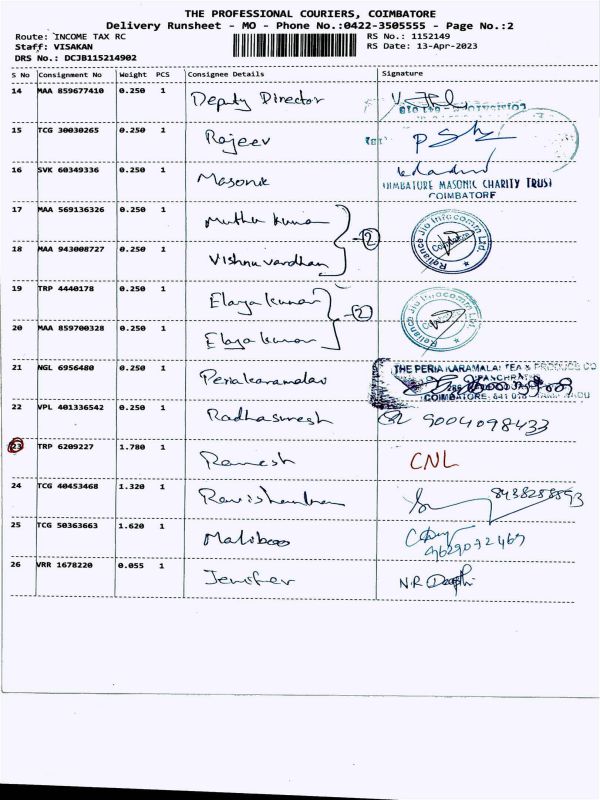 THE PROFESSIONAL COURIERS, COIMBATORE
Delivery Runsheet - MO - Phone No.:0422-3505555 - Page No.:2
Route: INCOME TAX RC RS No.: 1152149
Staff: VISAKAN RS Date: 13-Apr-2023
DRS No.: DCJB115214902
S No Consignment No Weight PCS Consignee Details Signature
14 MAA 859677410 0.250 1 Deputy Director
15 TCG 30030265 0.250 1 Rajeev
16 SVK 60349336 0.250 1 Masonic
COIMBATORE MASONIC CHARITY TRUST
COIMBATORE
17 MAA 569136326 0.250 1 Muthu kumar
2
Reliance Jio Infocomm Ltd.
Coimbatore
18 MAA 943008727 0.250 1 Vishnu vardhan
19 TRP 4440178 0.250 1 Elaya kumar
2
Reliance Jio Infocomm Ltd.
20 MAA 859700328 0.250 1 Elaya kumar
21 NGL 6956480 0.250 1 Periakaramalai
THE PERIA KARAMALAI TEA & PRODUCE CO
COIMBATORE
22 VPL 401336542 0.250 1 Radhasuresh 9004098433
23 TRP 6209227 1.780 1 Ramesh CNL
24 TCG 40453468 1.320 1 Ravishandran 8438288893
25 TCG 50363663 1.620 1 Maliboo
9629072469
26 VRR 1678220 0.055 1 Jenifer N.R Deepthi